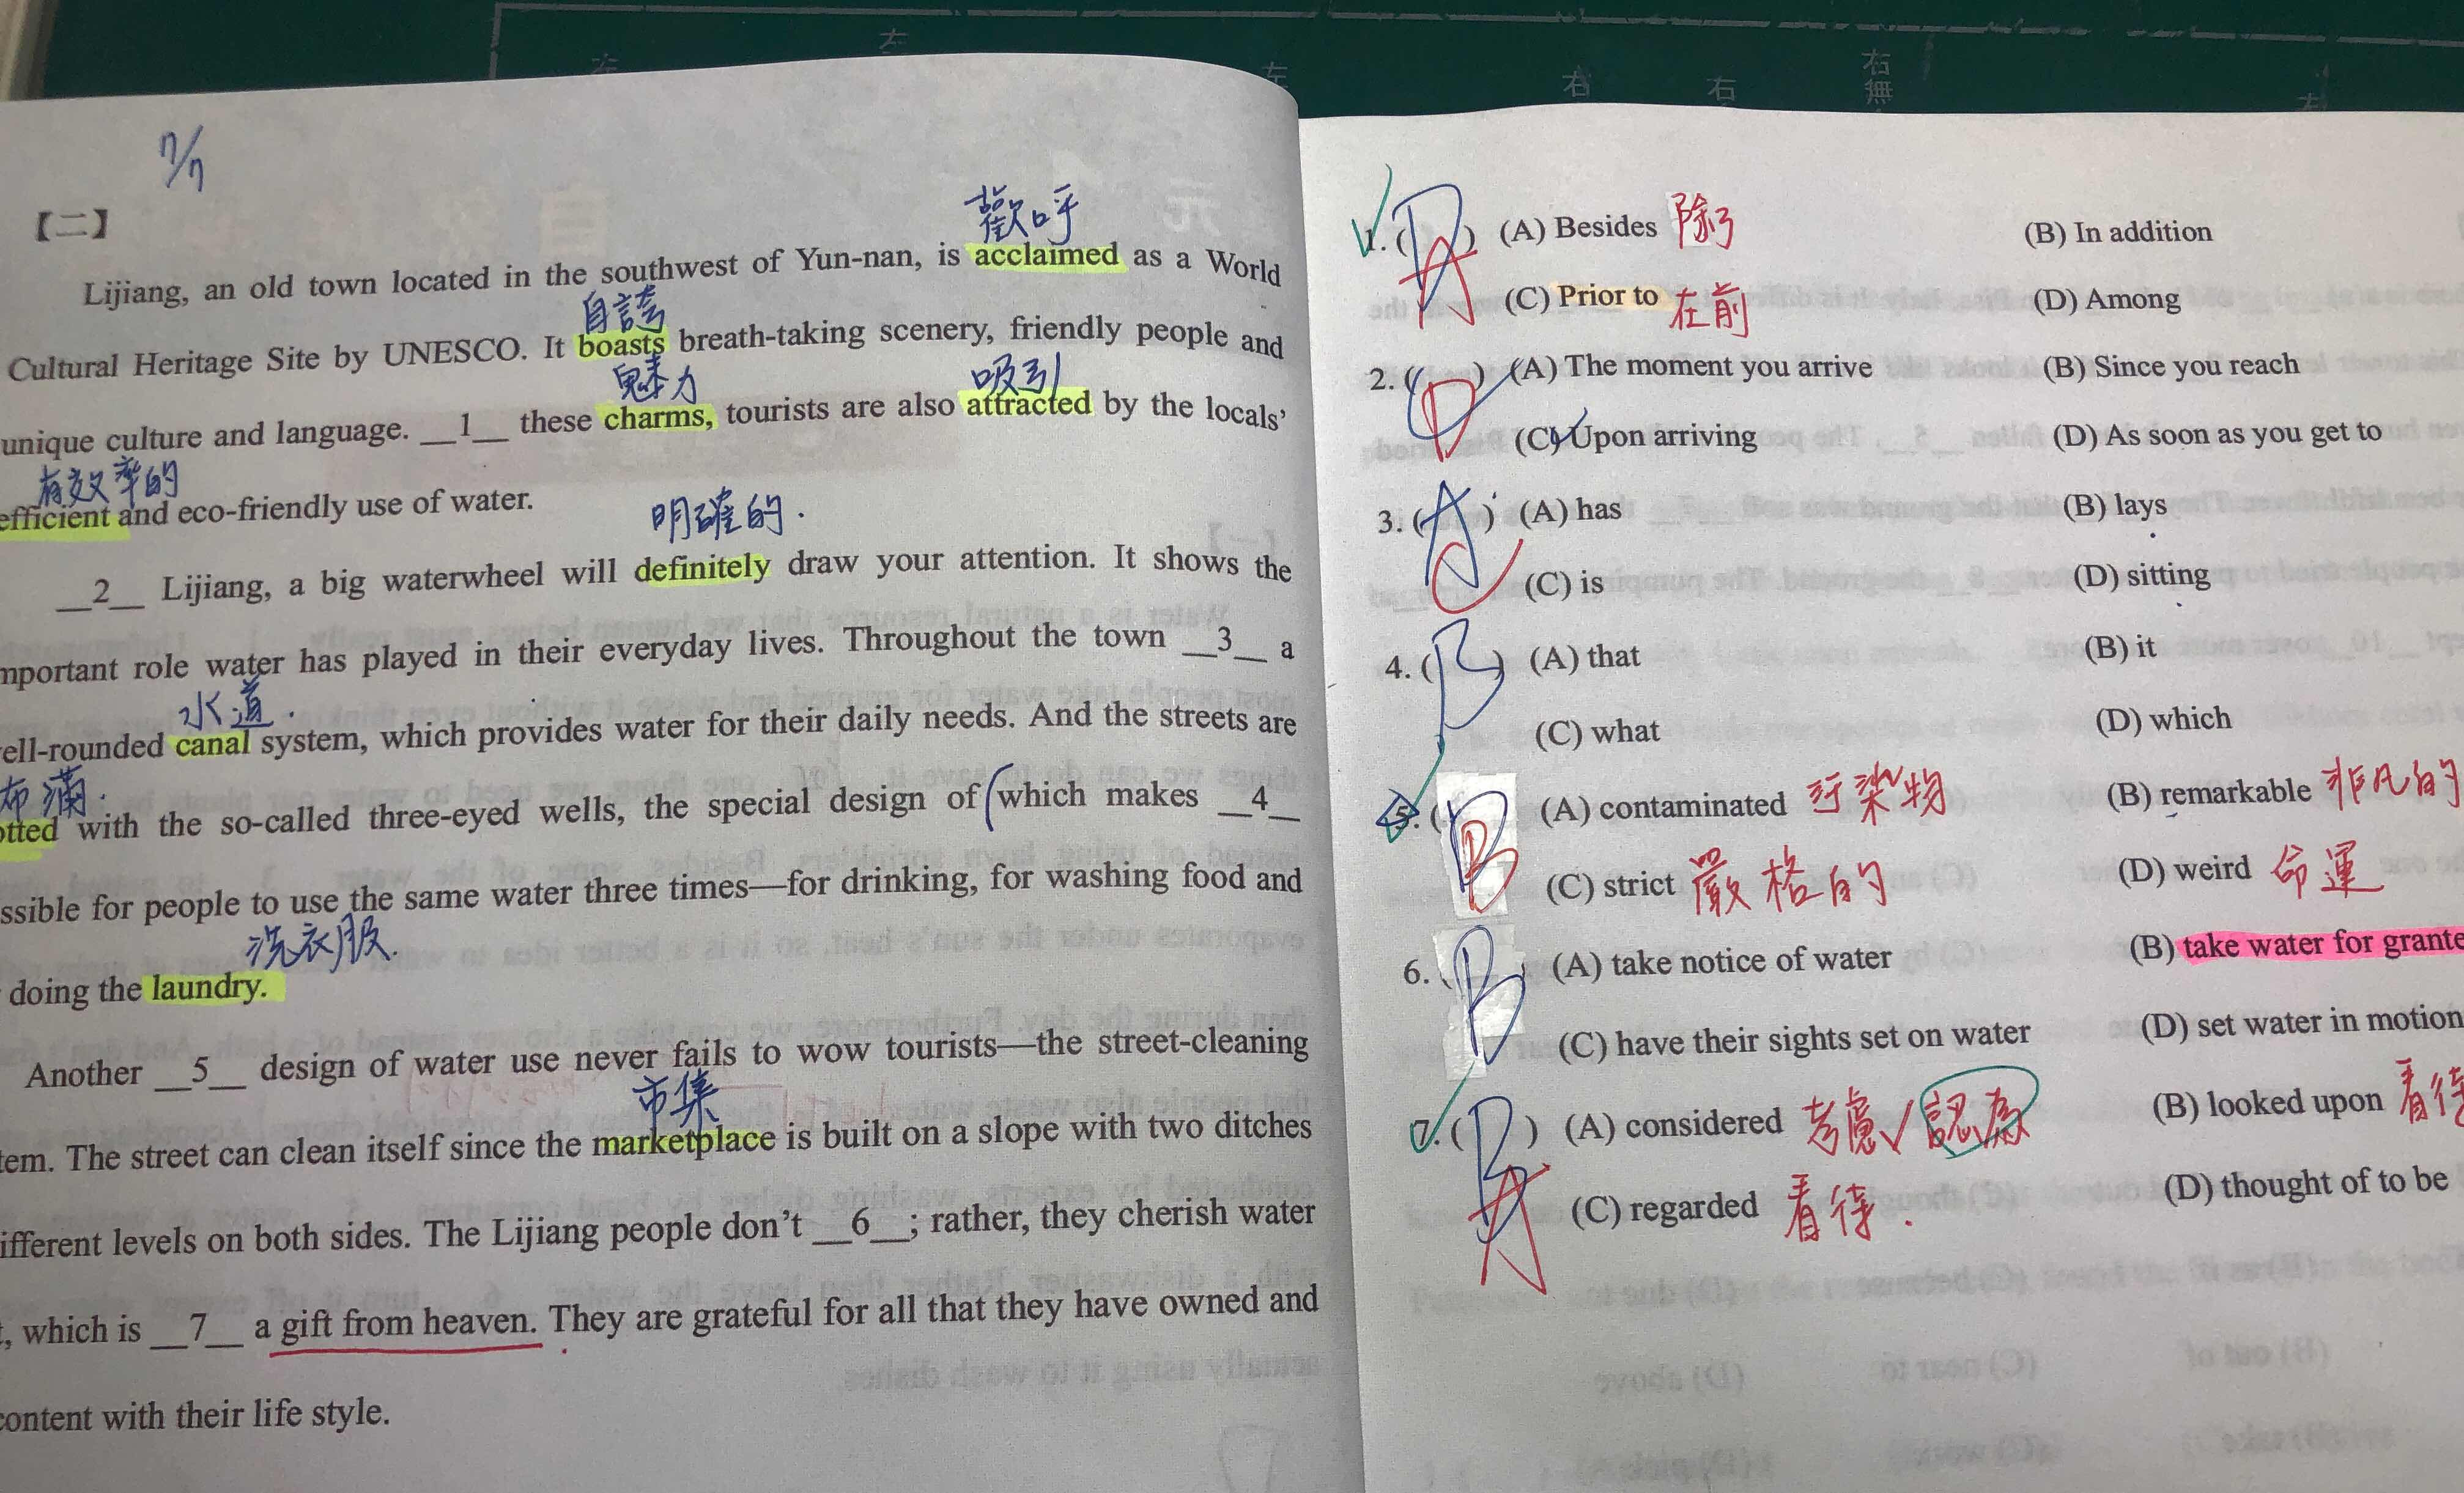 左
左
左
右
右
右
無
左
7/7
【二】
歡呼
Lijiang, an old town located in the southwest of Yun-nan, is acclaimed as a World
自誇
Cultural Heritage Site by UNESCO. It boasts breath-taking scenery, friendly people and
魅力 吸引
unique culture and language. __1__ these charms, tourists are also attracted by the locals'
有效率的
efficient and eco-friendly use of water.
明確的.
__2__ Lijiang, a big waterwheel will definitely draw your attention. It shows the
mportant role water has played in their everyday lives. Throughout the town __3__ a
水道.
ell-rounded canal system, which provides water for their daily needs. And the streets are
布滿.
otted with the so-called three-eyed wells, the special design of (which makes __4__
ssible for people to use the same water three times—for drinking, for washing food and
洗衣服.
doing the laundry.
Another __5__ design of water use never fails to wow tourists—the street-cleaning
市集
tem. The street can clean itself since the marketplace is built on a slope with two ditches
ifferent levels on both sides. The Lijiang people don't __6__; rather, they cherish water
, which is __7__ a gift from heaven. They are grateful for all that they have owned and
content with their life style.
1. (D A) (A) Besides 除了 (B) In addition
(C) Prior to 在前 (D) Among
2. (C D) (A) The moment you arrive (B) Since you reach
(C) Upon arriving (D) As soon as you get to
3. (A C) (A) has (B) lays
(C) is (D) sitting
4. (B) (A) that (B) it
(C) what (D) which
5. (B) (A) contaminated 污染物 (B) remarkable 非凡的
(C) strict 嚴格的 (D) weird 命運
6. (B) (A) take notice of water (B) take water for grante
(C) have their sights set on water (D) set water in motion
7. (B A) (A) considered 考慮✓認為 (B) looked upon 看待
(C) regarded 看待. (D) thought of to be